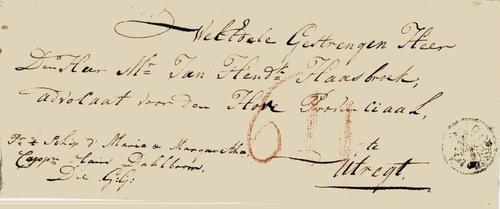 WelEdele Gestrengen Heer
Den Heer Mr Jan Hendk Haasbroek,
advocaat voor den Hove Provinciaal,
te
Utregt.
Pr t Schip d' Maria & Margaretha
Cappn Dahlbom,
Die G.G:
6